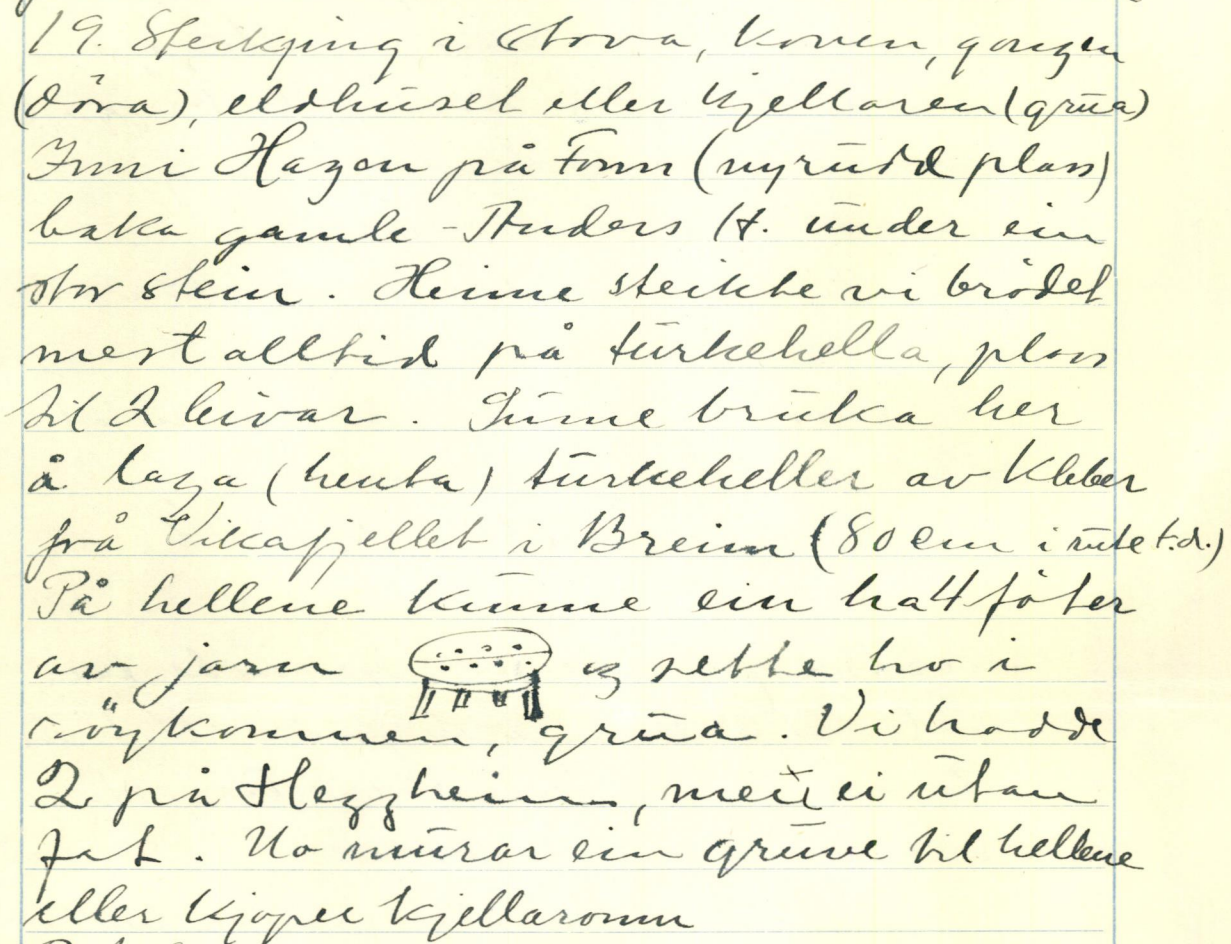 19. Steikjing i stova, koven, gongen
(döra), eldhuset eller kjellaren (grua)
Inni Hagen på Fonn (nyrudd plass)
baka gamle-Anders H. under ein
stor stein. Heime steikte vi brödet
mest alltid på turkehella, plass
til 2 leivar. Sume bruka her
å laga (henta) turkeheller av kleber
frå Vikafjellet i Breim (80 cm i rute t.d.)
På hellene kunne ein ha 4 föter
av jarn og sette ho i
röykomnen, grua. Vi hadde
2 på Heggheim, men ei utan
fat. No murar ein gruve til hellene
eller kjöper kjellaromn